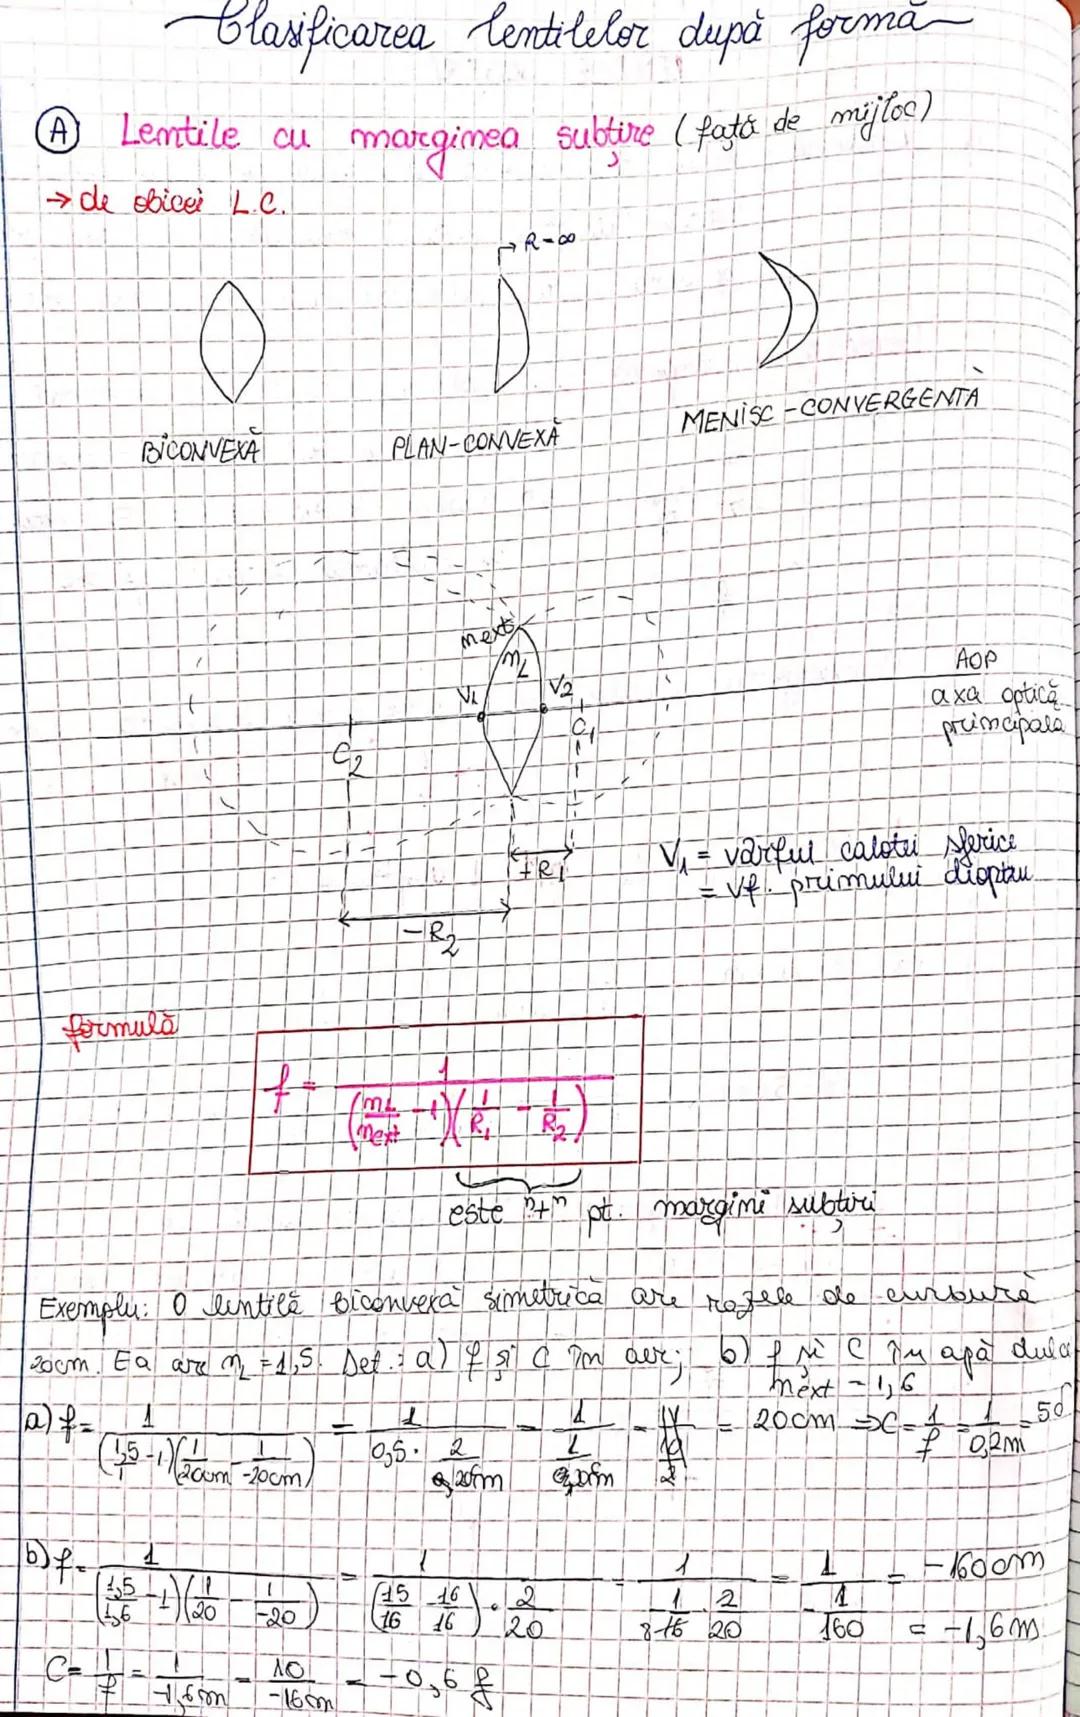 Clasificarea lentilelor după formă
Ⓐ Lentile cu marginea subțire (față de mijloc)
→ de obicei L.C.
→ R=∞
BICONVEXĂ
PLAN-CONVEXĂ
MENISC-CONVERGENTĂ
next
nL
V1
V2
C2
C1
AOP
axa optică
principala
+R1
-R2
V1 = vârful calotei sferice
= vf. primului dioptru
formulă
f = 1 / ((nL/next - 1)(1/R1 - 1/R2))
este "+" pt. margini subțiri
Exemplu: O lentilă biconvexă simetrică are razele de curbură
20cm. Ea are nL = 1,5. Det.: a) f și C în aer; b) f și C în apă dulce
next = 1,6
a) f = 1 / ((1,5/1 - 1)(1/20cm - 1/-20cm)) = 1 / (0,5 · 2/20cm) = = 20cm ⇒ C = 1/f = 1/0,2m = 5δ
b) f = 1 / ((1,5/1,6 - 1)(1/20 - 1/-20)) = 1 / ((15/16 - 16/16) · 2/20) = 1 / (- 1/16 · 2/20) = 1 / (- 1/160) = -160cm
= -1,6m
C = 1/f = 1/-1,6m = 10/-16m = -0,6 δ